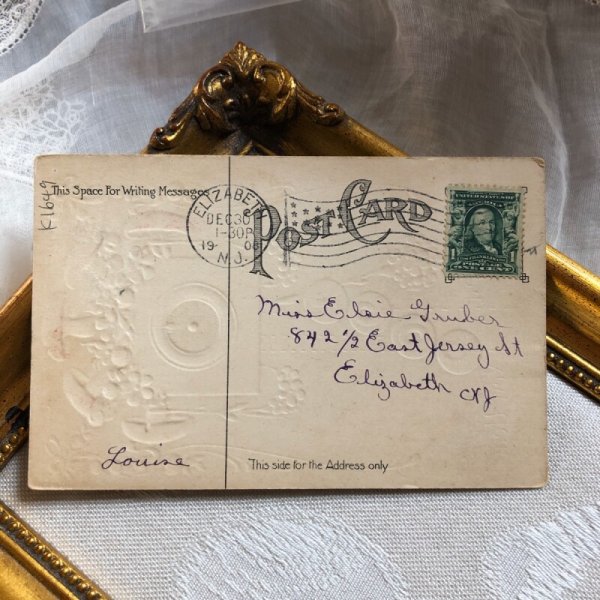 K1649
This Space For Writing Messages
ELIZABETH
DEC 30
1-30P
19 08
N.J.
POST CARD
842 1/2 East Jersey St
Miss Elsie Gruber
Elizabeth NJ
Louise
This side for the Address only